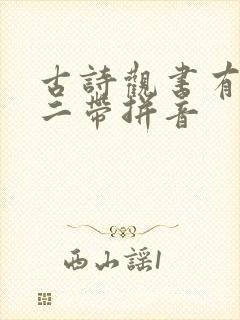 古詩觀書有
二帶拼音
西山謡1